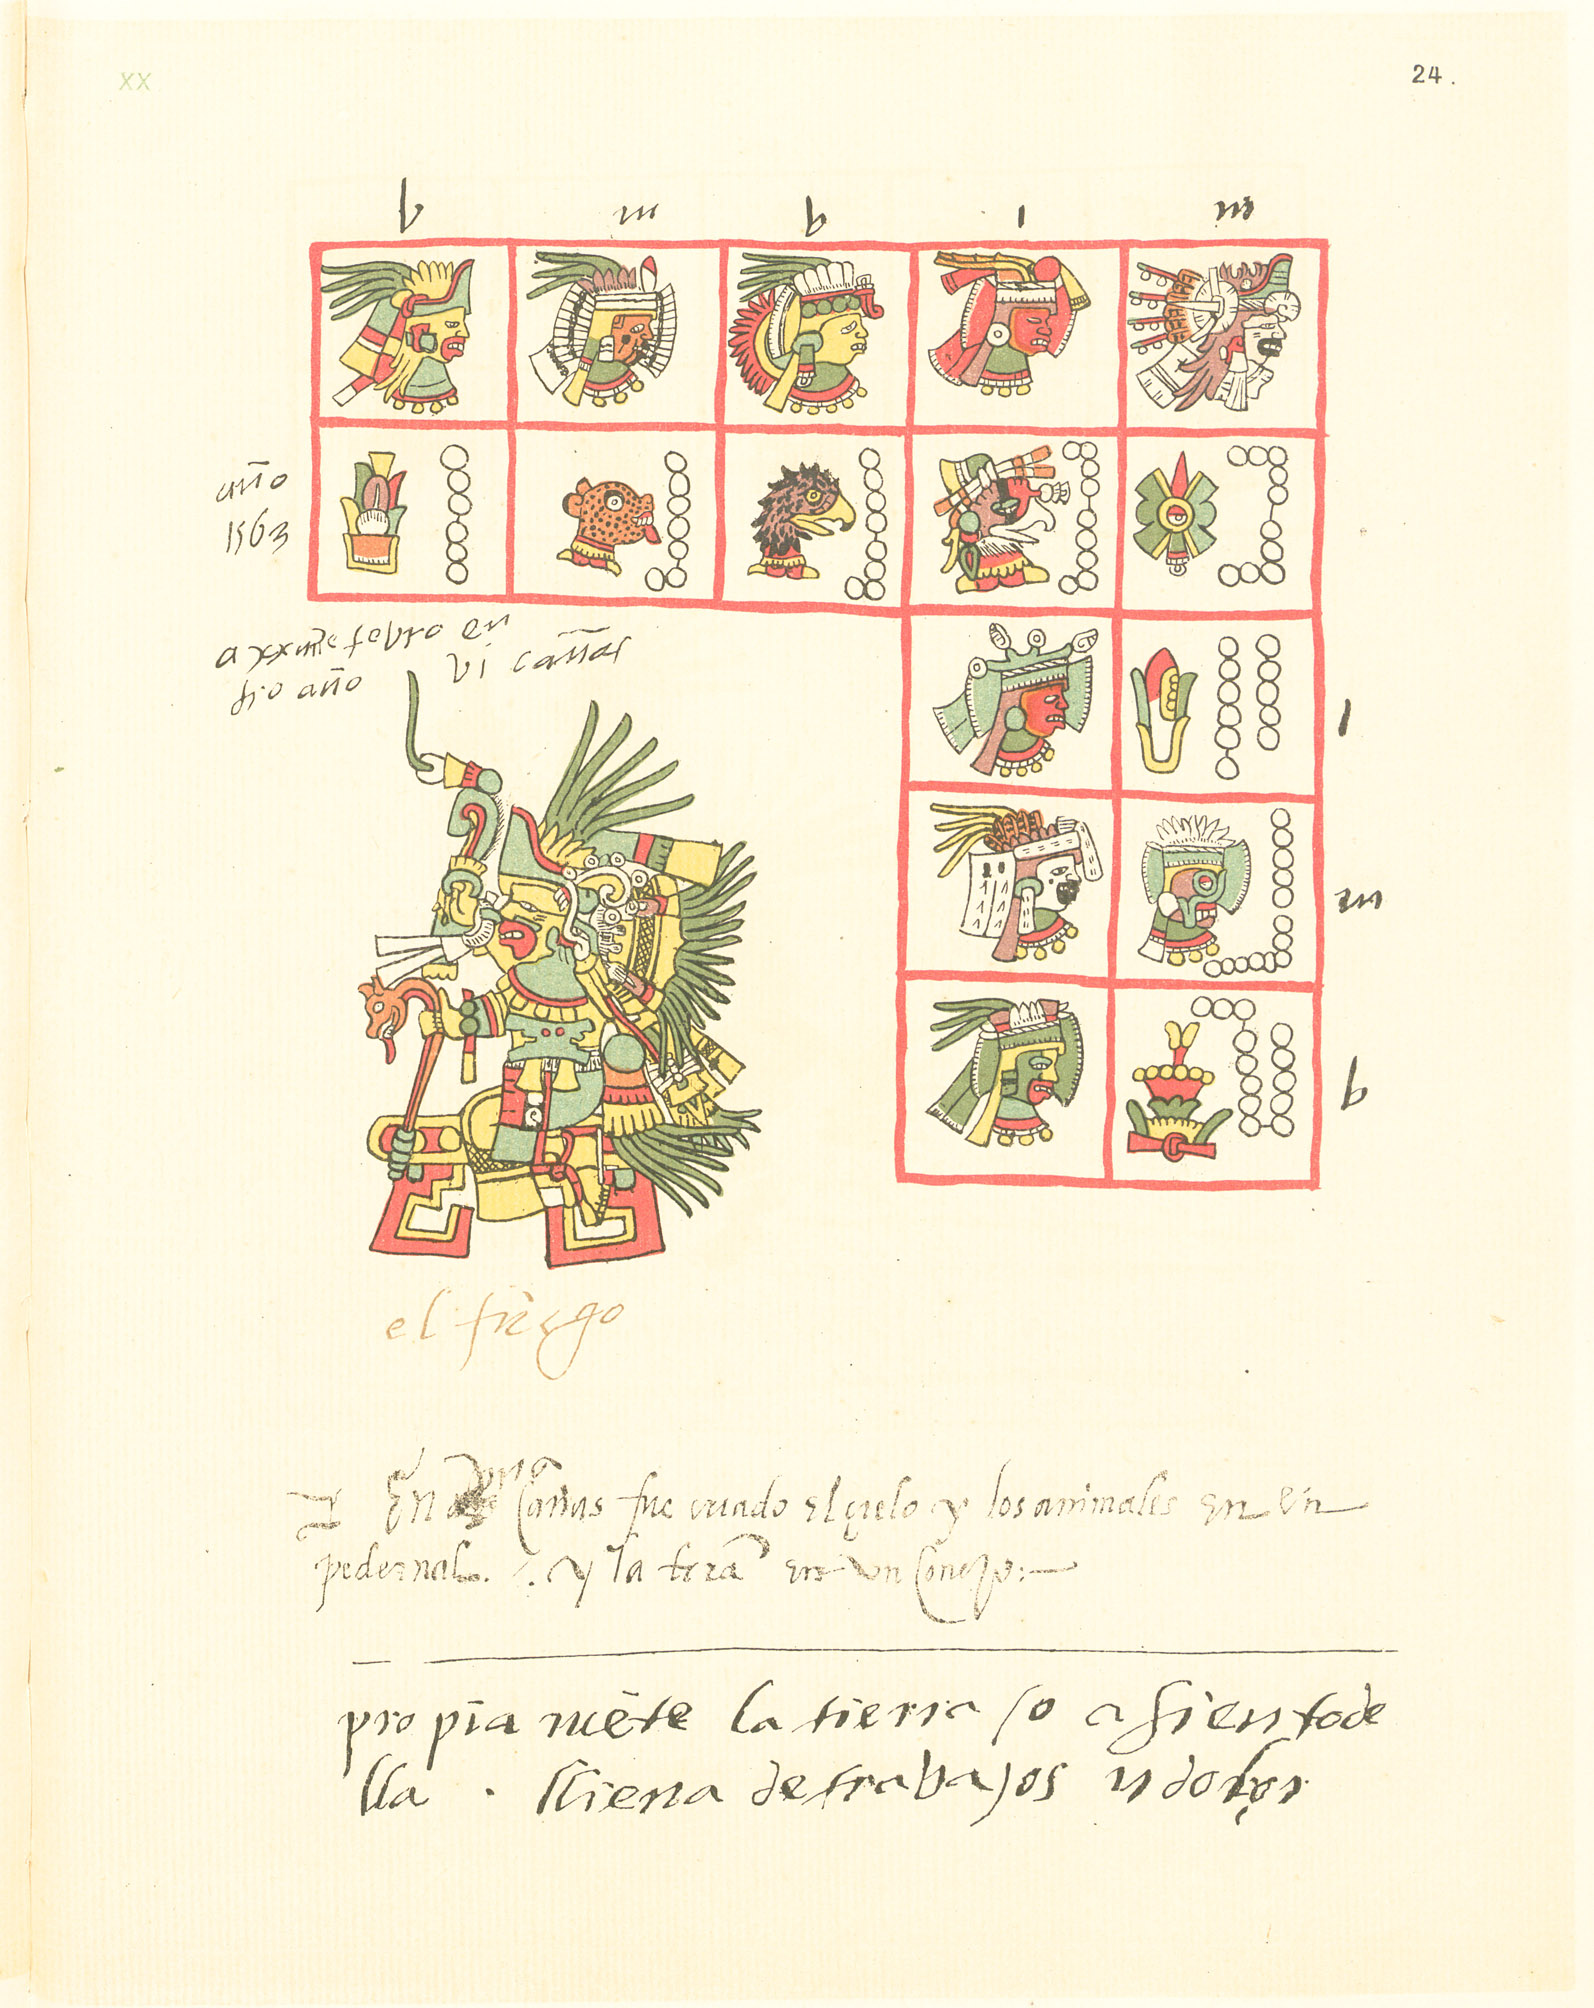 XX
24.
b m b i m
año
1563
febro en
dio año
vi cañas
l
m
b
el fuego
En una cañas fue criado el çielo y los animales en un
pedernal. y la trrā en un Conejo:
propia mēte la tierra so asientode
lla . lliena detrabajos y dolor